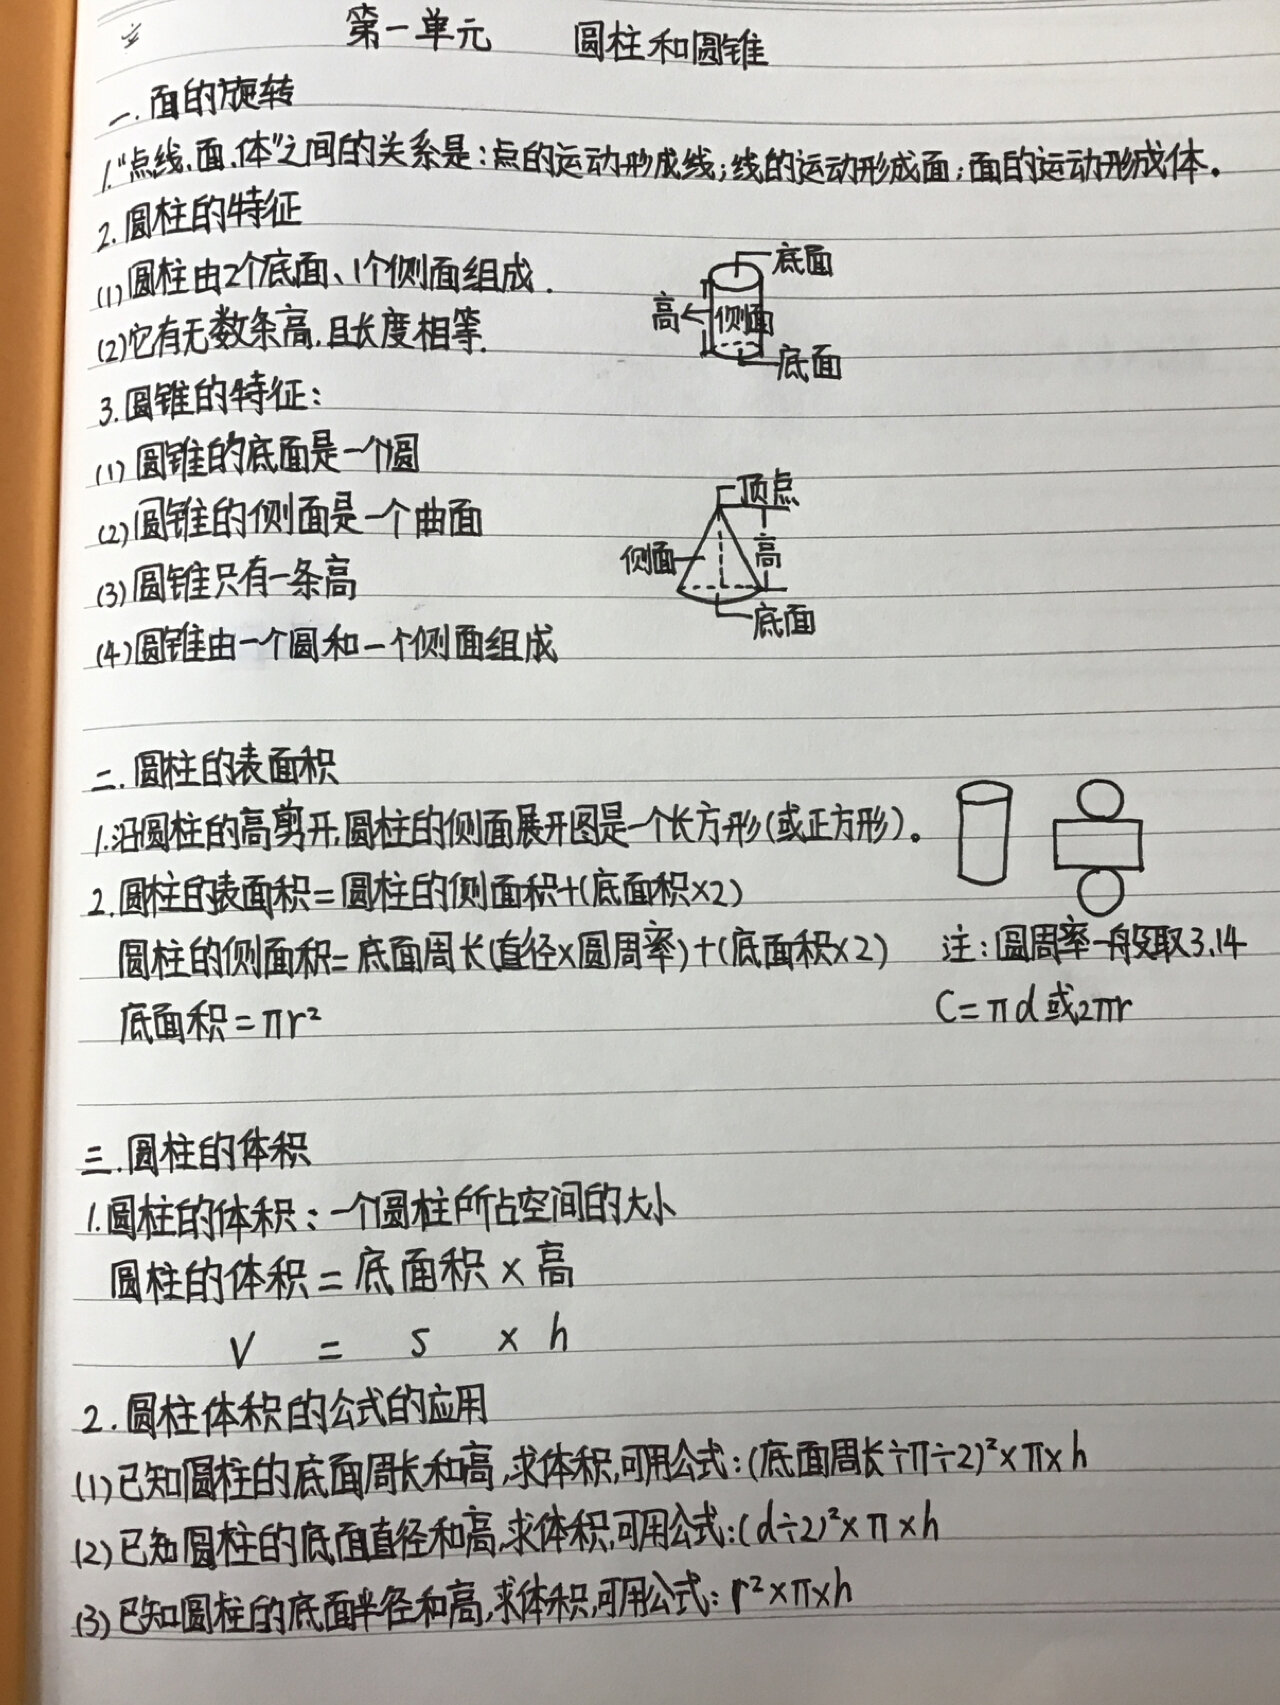 第一单元 圆柱和圆锥
一.面的旋转
1."点、线、面、体"之间的关系是:点的运动形成线;线的运动形成面;面的运动形成体。
2.圆柱的特征
(1)圆柱由2个底面、1个侧面组成.
(2)它有无数条高,且长度相等.
底面
高
侧面
底面
3.圆锥的特征:
(1)圆锥的底面是一个圆
(2)圆锥的侧面是一个曲面
(3)圆锥只有一条高
(4)圆锥由一个圆和一个侧面组成
顶点
侧面
高
底面
二.圆柱的表面积
1.沿圆柱的高剪开,圆柱的侧面展开图是一个长方形(或正方形)。
2.圆柱的表面积=圆柱的侧面积+(底面积×2)
圆柱的侧面积=底面周长(直径×圆周率)+(底面积×2)
注:圆周率一般取3.14
底面积=πr²
C=πd或2πr
三.圆柱的体积
1.圆柱的体积:一个圆柱所占空间的大小
圆柱的体积=底面积×高
V = S × h
2.圆柱体积的公式的应用
(1)已知圆柱的底面周长和高,求体积,可用公式:(底面周长÷π÷2)²×π×h
(2)已知圆柱的底面直径和高,求体积,可用公式:(d÷2)²×π×h
(3)已知圆柱的底面半径和高,求体积,可用公式:r²×π×h